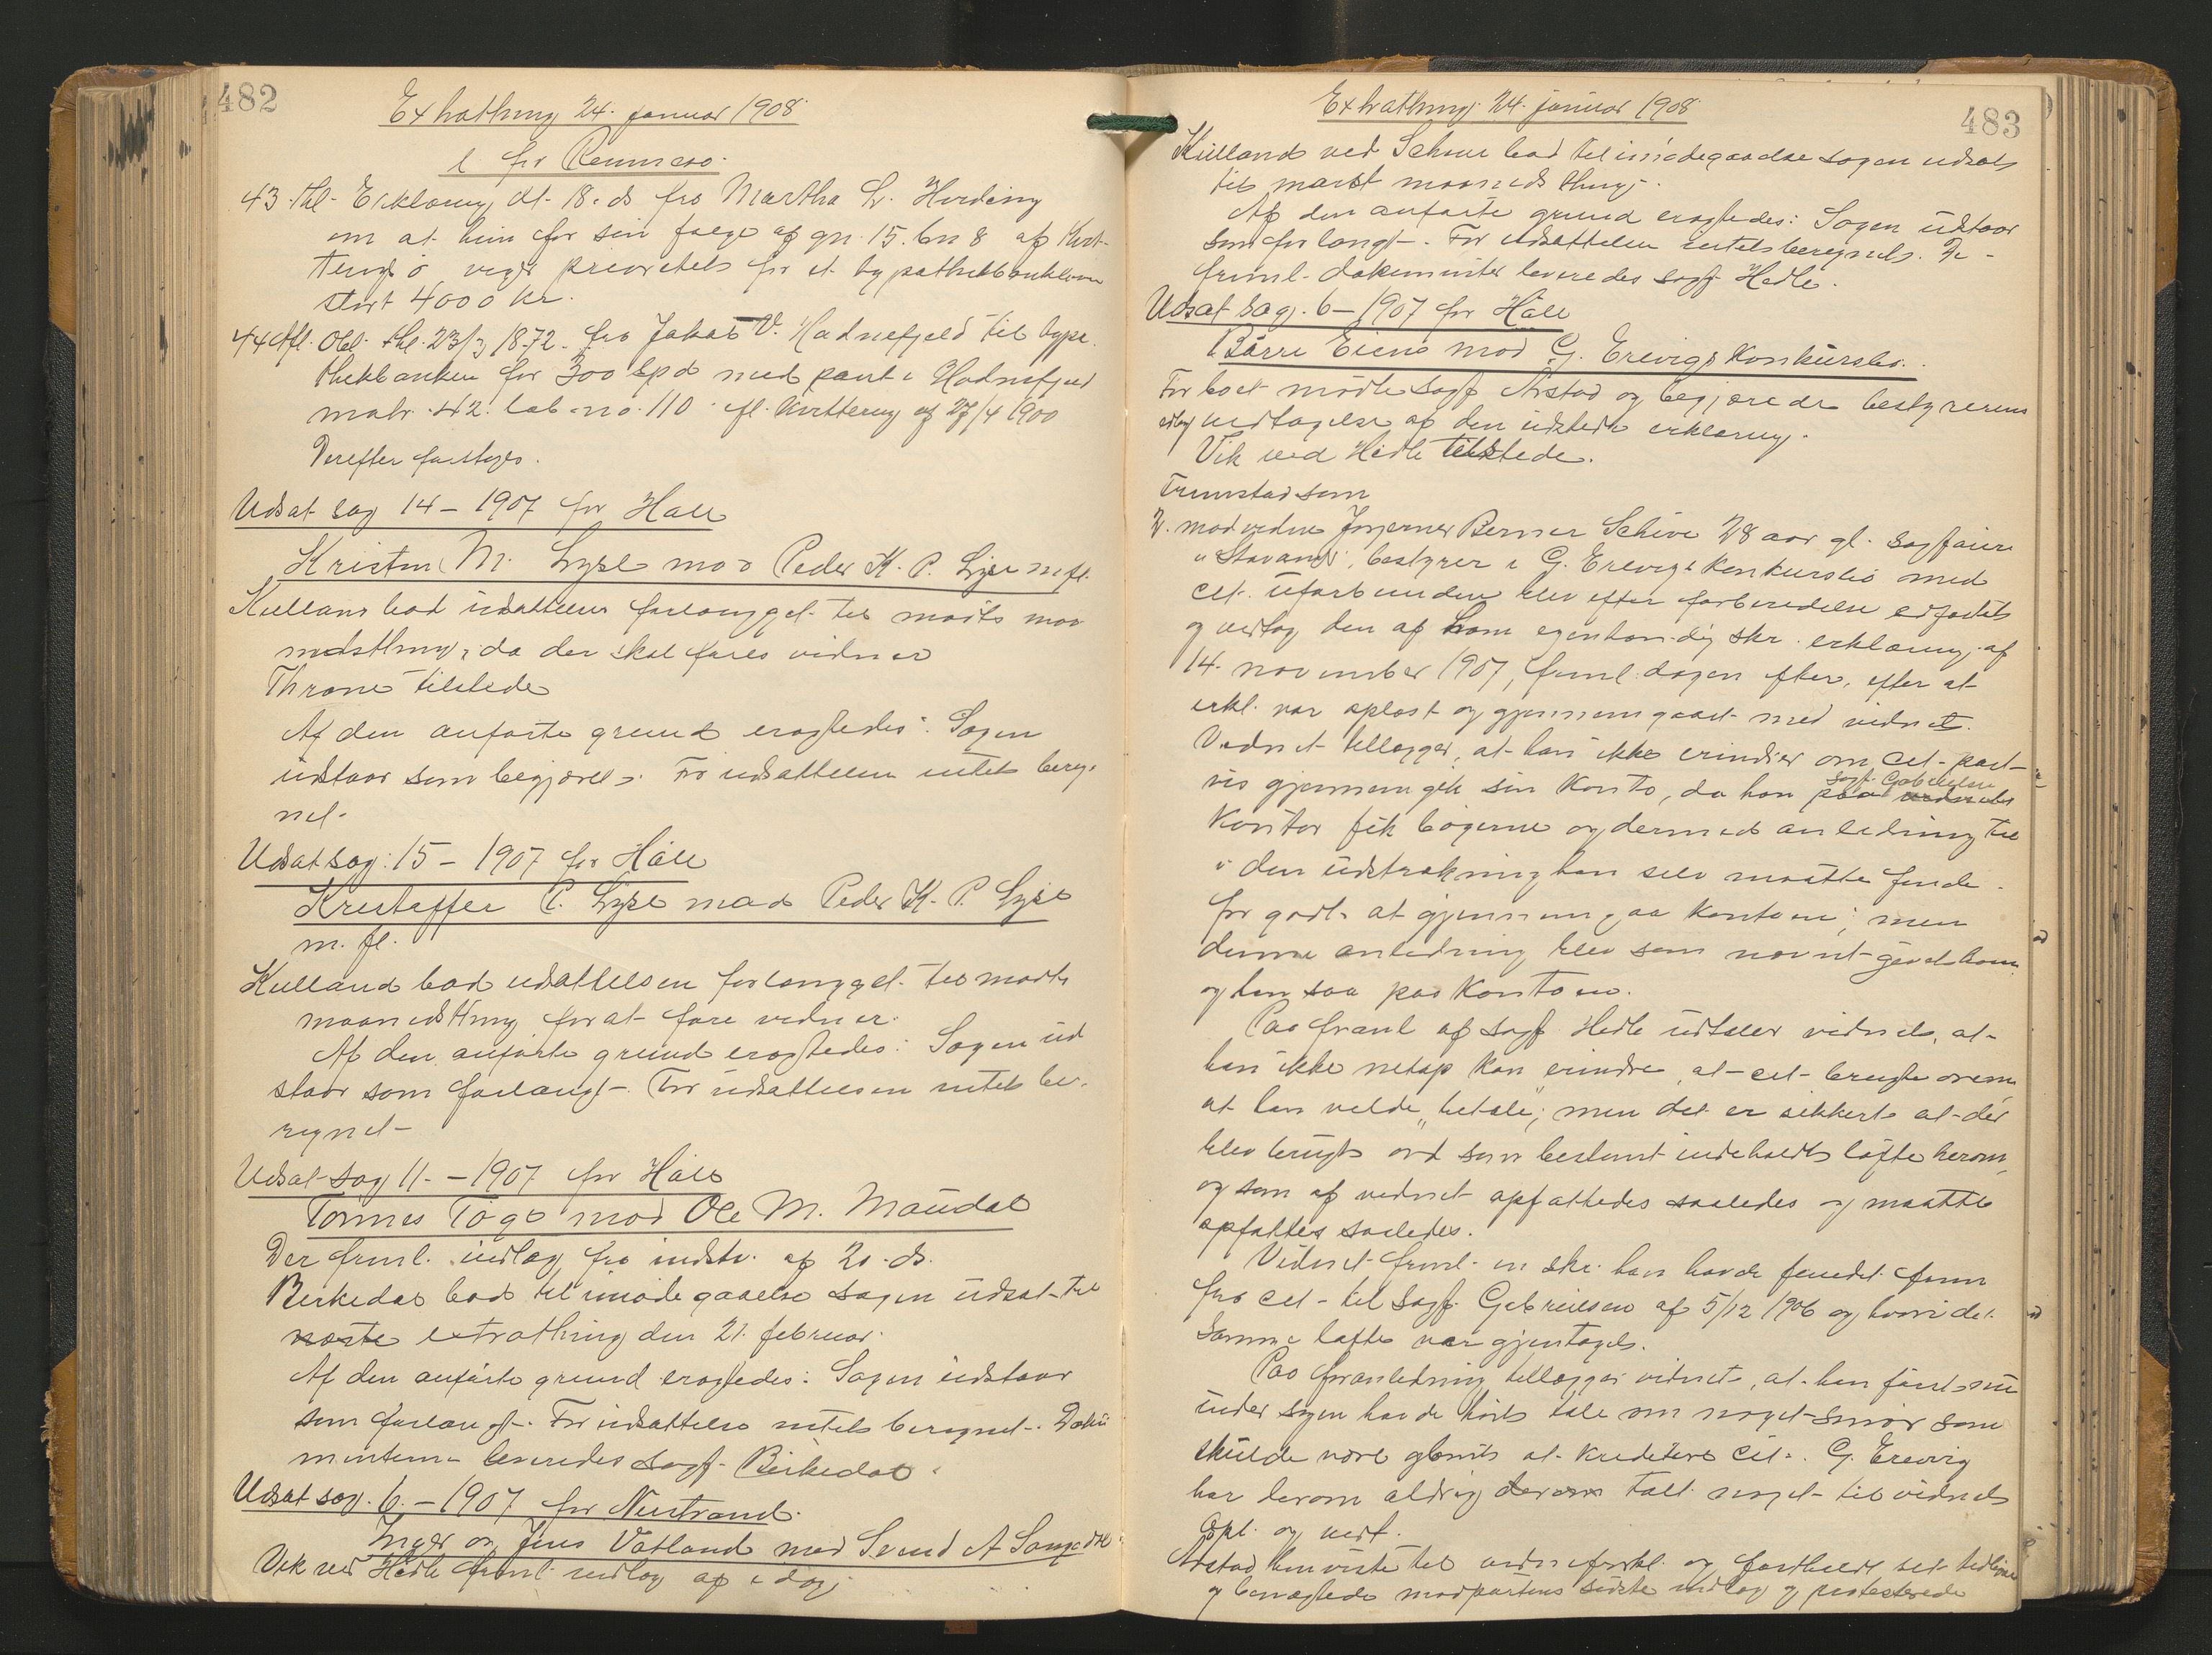 482
Extrathing 24. januar 1908
l for Rennesø.
43. thl. Erklæring dt. 18. ds fra Martha
om at hun for sin følge af gn. 15. bn 8 af
viger prioritets for et hypothekbanklaan
stort 4000 kr.
44. Afl. Obl. thl. 23/3 1872. fra Jakob V. Hadnefjeld til hypo-
thekbanken for 300 Spd med pant i Hadnefjeld
matr. 42. løb-no. 110 ifl. kvittering af 27/4 1900
Derefter
Udsat sag 14 – 1907 for Håle
Kristen M. Lyse mod Peder K. P. Lyse m. fl.
Kielland bad udsættelsen forlænget til marts maa-
nedsthing, da der skal føres vidner
Throne tilstede
Af den anførte grund eragtedes: Sagen
udstaar som begjæret. For udsættelsen intet bereg-
net.
Udsat sag: 15 – 1907 for Håle
Kristoffer P. Lyse mod Peder K. P. Lyse
m. fl.
Kielland bad udsættelsen forlænget til marts
maanedsthing for at føre vidner.
Af den anførte grund eragtedes: Sagen ud
staar som forlangt. For udsættelsen intet be-
regnet
Udsat sag 11. – 1907 for Håle
Tønnes Tøge mod Ole M. Maudal
Der freml. indlæg fra indstv. af 20. ds.
Birkedal bad til imødegaaelse sagen udsat til
næste extrathing den 21. februar.
Af den anførte grund eragtedes: Sagen udstaar
som forlangt. For udsættelse intet beregnet. Doku
menterne leveredes sagf. Birkedal.
Udsat sag. 6. – 1907 for Nærstrand.
Inger og Jens Vatland mod Svend A
Vik ved Hedle freml. indlæg af idag
483
Extrathing 24. januar 1908
Kielland ved Schive bad til imødegaaelse sagen udsat
til marts maaneds thing.
Af den anførte grund eragtedes: Sagen udstaar
som forlangt. For udsættelsen intet beregnet. De
freml. dokumenter leveredes sagf. Hedle.
Udsat sag. 6 – 1907 for Håle
Børre Eiene mod G. Erevigs konkursbo.
For boet mødte sagf. Årstad og begjærede bestyrerens
edlig vedtagelse af den udstedte erklæring.
Vik ved Hedle tilstede.
Fremstod som
2. modvidne Jørgen Berner Schive 28 aar gl. sagfører
i Stavanger, bestyrer i G. Erevigs konkursbo med
cit. uforbunden blev efter forberedelse edfæstet
og vedtog den af ham egenhændig skr. erklæring af
14. november 1907, freml. dagen efter, efter at
erkl. var oplæst og gjennemgaaet med vidnet.
Vidnet tillægger, at han ikke erindrer om cit. post-
vis gjennemgik sin konto, da han paa sagf. Gabrielsens
kontor fik bøgerne og dermed anledning til
i den udstrækning han selv maatte finde
for godt at gjennemgaa kontoen; men
denne anledning blev som nævnt givet ham
og han saa paa kontoen.
Paa foranl. af sagf. Hedle udtaler vidnet, at
han ikke netop kan erindre, at cit. brugte ordene
at han vilde „betale“; men det er sikkert at der
blev brugt ord som bestemt indeholdt løfte herom,
og som af vidnet opfattedes saaledes og maatte
opfattes saaledes.
Vidnet freml. en skr. han havde fundet frem
fra cit. til sagf. Gabrielsen af 5/12 1906 og hvori det
samme løfte var gjentaget.
Paa foranledning tillægger vidnet, at han først nu
under sagen havde hørt tale om noget smør som
skulde være glemt at kreditere cit. G. Erevig
har herom aldrig talt noget til vidnet
Opl. og vedt.
Årstad henviste til vidneforkl. og fastholdt sit tidligere
og benægtede modpartens sidste indlæg og protesterede